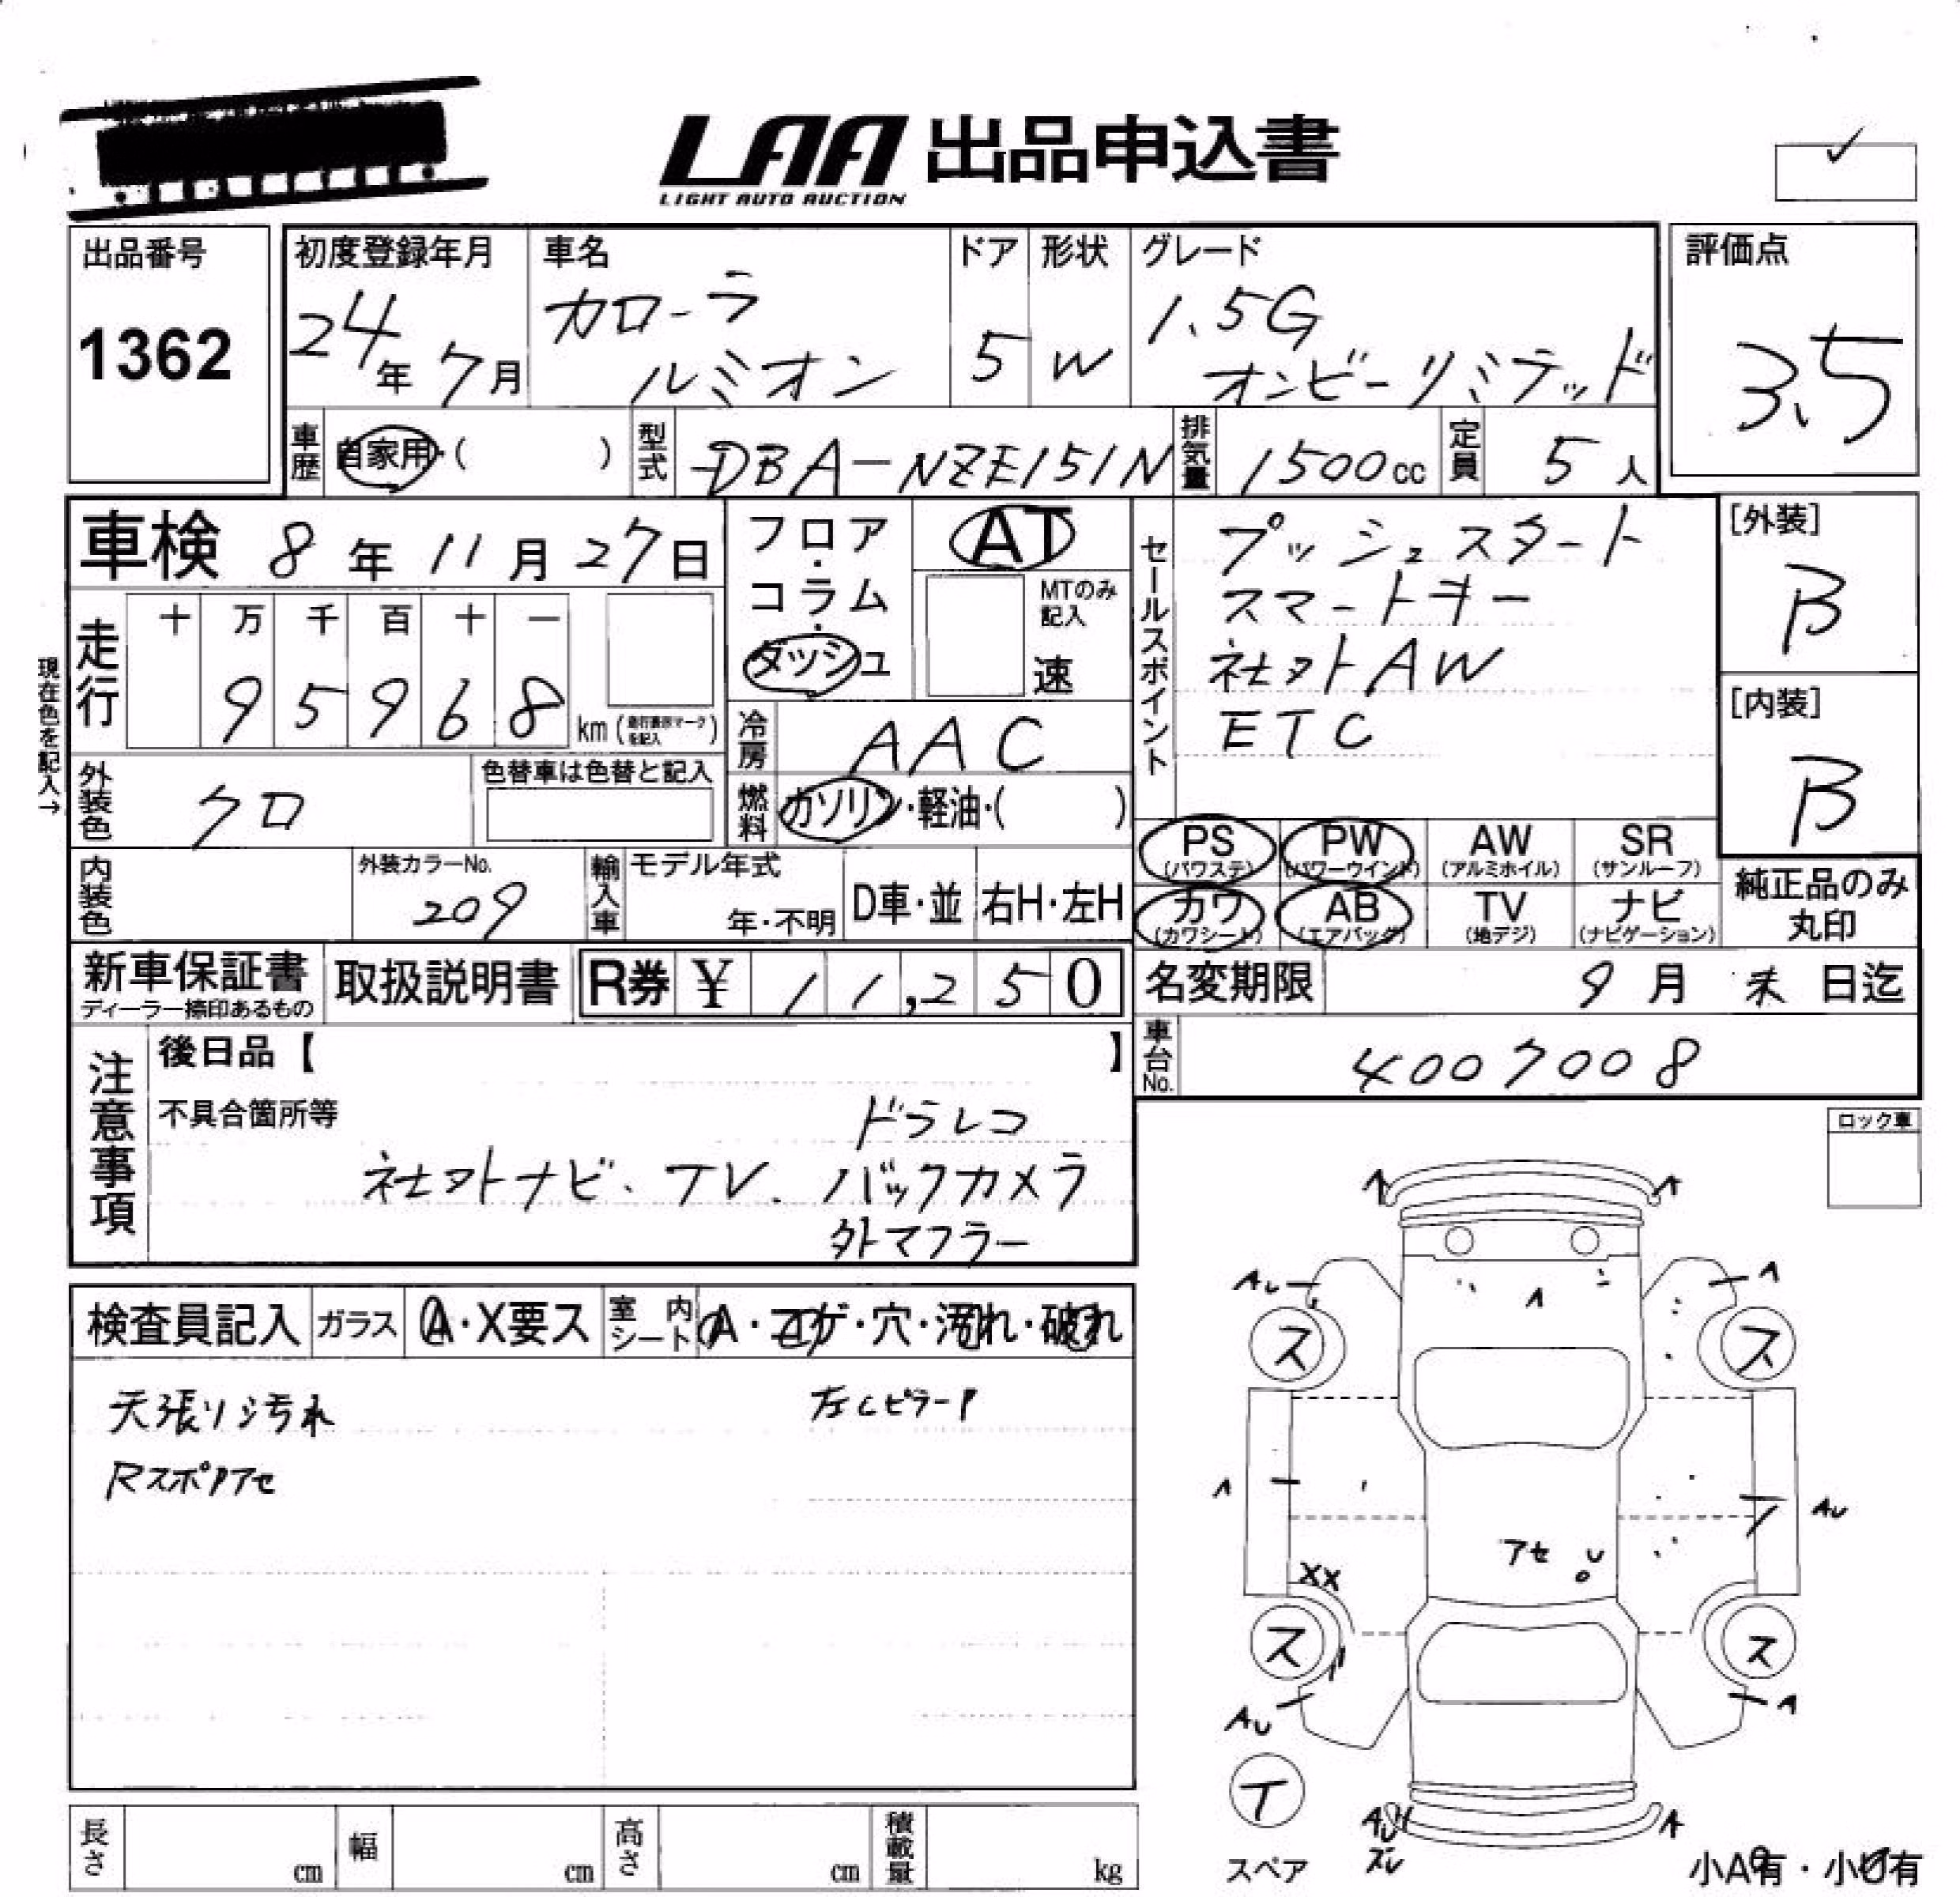 LAA 出品申込書
LIGHT AUTO AUCTION
出品番号
1362
初度登録年月
24年 7月
車名
カローラ
ルミオン
ドア
5
形状
W
グレード
1.5G
オンビーリミテッド
評価点
3.5
車歴
自家用・( )
型式
DBA-NZE151N
排気量
1500cc
定員
5人
車検 8年 11月 27日
現在色を記入→
走行
十 万 千 百 十 一
9 5 9 6 8 km (走行表示マークを記入)
フロア・コラム・ダッシュ
AT
MTのみ記入
速
冷房
AAC
燃料
ガソリン・軽油・( )
セールスポイント
プッシュスタート
スマートキー
社外AW
ETC
[外装]
B
[内装]
B
外装色
クロ
色替車は色替と記入
内装色
外装カラーNo.
209
輸入車
モデル年式
年・不明
D車・並
右H・左H
PS (パワステ)
PW (パワーウインド)
AW (アルミホイル)
SR (サンルーフ)
カワ (カワシート)
AB (エアバッグ)
TV (地デジ)
ナビ (ナビゲーション)
純正品のみ
丸印
新車保証書
ディーラー捺印あるもの
取扱説明書
R券 ¥ 11,250
名変期限
9月 末日迄
車台No.
4007008
注意事項
後日品【 】
不具合箇所等
ドラレコ
社外ナビ. TV. バックカメラ
外マフラー
ロック車
検査員記入
ガラス
A・X要ス
室内シート
A・コゲ・穴・汚れ・破れ
天張リシ汚れ
左CピラーP
RスポPアセ
A
A
AU
A
A
ス
ス
A
AU
アセ
U
XX
ス
ス
AU
A
T
スペア
ズレ
A
小A有・小U有
長さ
cm
幅
cm
高さ
cm
積載量
kg